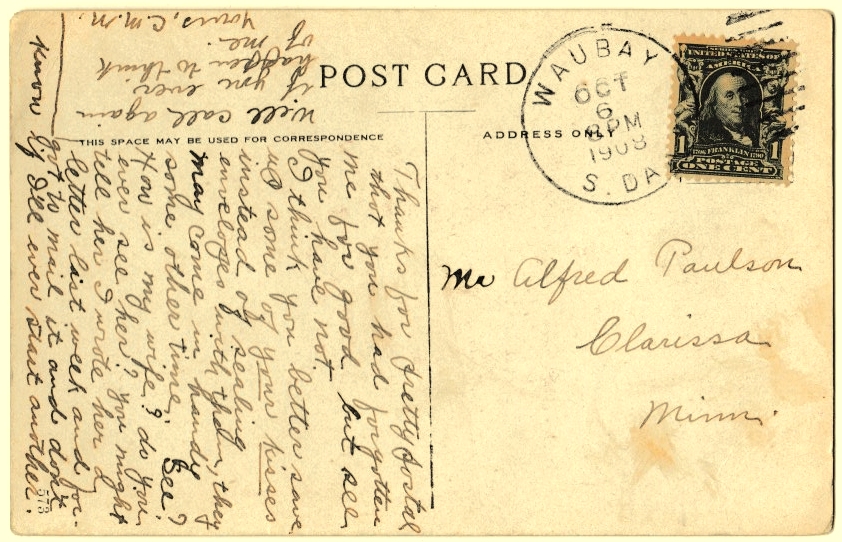 POST CARD
THIS SPACE MAY BE USED FOR CORRESPONDENCE
ADDRESS ONLY
WAUBAY
OCT
6
PM
1908
S. DAK
SERIES 1902
UNITED STATES OF
AMERICA
1 1
1706 FRANKLIN 1790
POSTAGE
ONE CENT
Mr Alfred Paulson
Clarissa
Minn.
Thanks for pretty postal
thot you had forgotten
me for good but see
you have not.
I think you better save
up some of your kisses
instead of sealing
envelopes with them, they
may come in handy
some other time. See?
How is my wife? do you
ever see her? you might
tell her I wrote her a
letter last week and for-
got to mail it and don't
know if I'll ever start another.
Will call again
if you ever
happen to think
of me.
Yours, C.M.N.
573